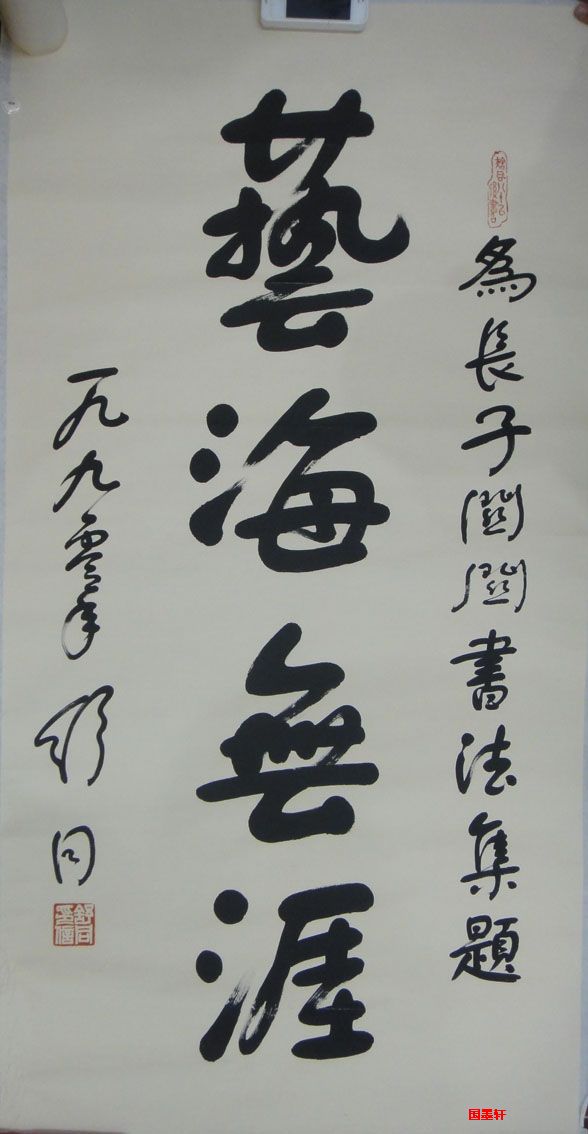 為長子關關書法集題
藝海無涯
一九九零年
舒同
舒同之信
国墨轩